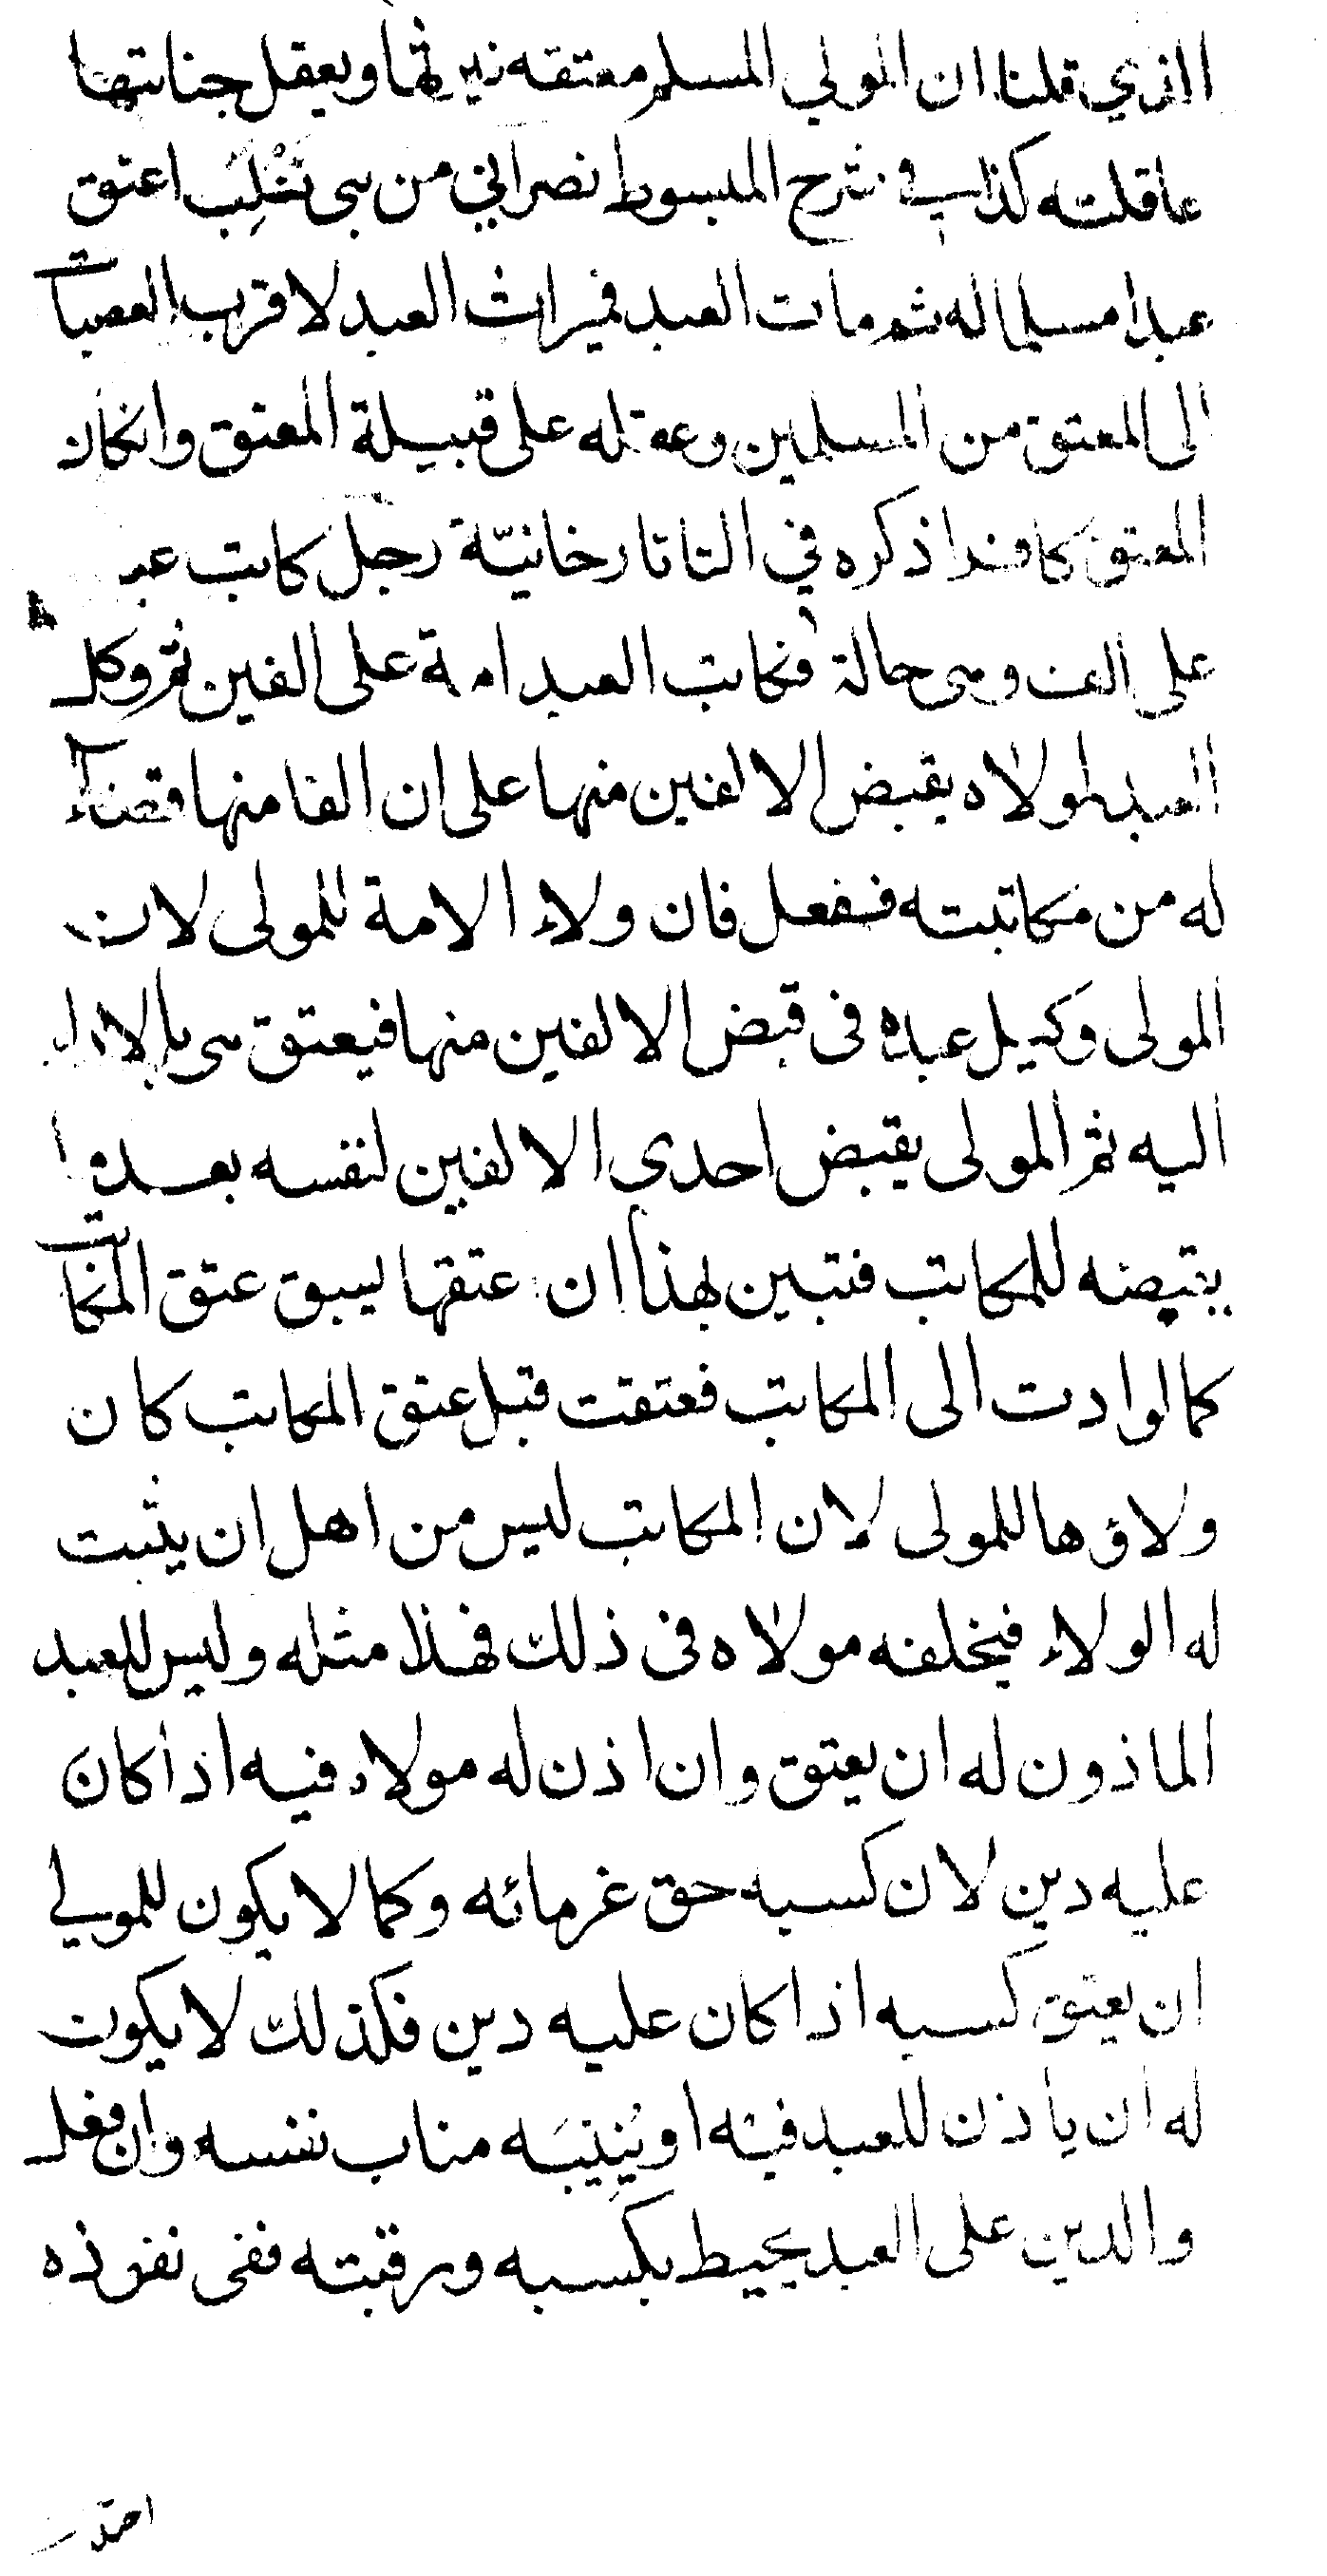 الذي قلنا ان المولي المسلم معتقه فيرثها ويعقل جنايتها
عاقلته كذا في شرح المبسوط نصراني من بني تغلب اعتق
عبدا مسلما له ثم مات العبد فميراث العبد لاقرب العصبات
الى المعتق من المسلمين وعقله على قبيلة المعتق وان كان
المعتق كافرا ذكره في التاتارخانيّة رجل كاتب عبد
على الف وهي حالة فكاتب العبد امة على الفين ثم وكل
العبد لمولاه يقبض الالفين منها على ان الفا منها قضاء
له من مكاتبته ففعل فان ولاء الامة للمولى لان
المولى وكيل عبده فى قبض الالفين منها فيعتق هى بالاداء
اليه ثم المولى يقبض احدى الالفين لنفسه بعد ما
يقبضه للمكاتب فتبين بهذا ان عتقها يسبق عتق المكاتب
كما لو ادت الى المكاتب فعتقت قبل عتق المكاتب كان
ولاؤها للمولى لان المكاتب ليس من اهل ان يثبت
له الولاء فيخلفه مولاه فى ذلك فهذا مثله وليس للعبد
الماذون له ان يعتق وان اذن له مولاه فيه اذا كان
عليه دين لان كسبه حق غرمائه وكما لا يكون للمولي
ان يعتق كسبه اذا كان عليه دين فكذلك لا يكون
له ان يأذن للعبد فيه او يُنيبَه مناب نفسه وان فعل
والدين على العبد يحيط بكسبه ورقبته ففى نفوذه